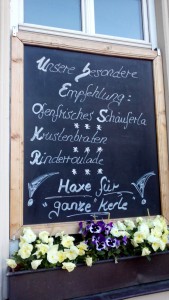 Unsere besondere
Empfehlung:
Ofenfrisches Schäuferla
***
Krustenbraten
***
Rinderroulade
***
Haxe für
ganze Kerle